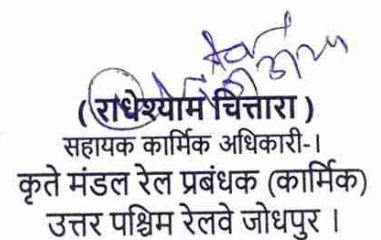 ( राधेश्याम चित्तारा )
सहायक कार्मिक अधिकारी-।
कृते मंडल रेल प्रबंधक (कार्मिक)
उत्तर पश्चिम रेलवे जोधपुर ।